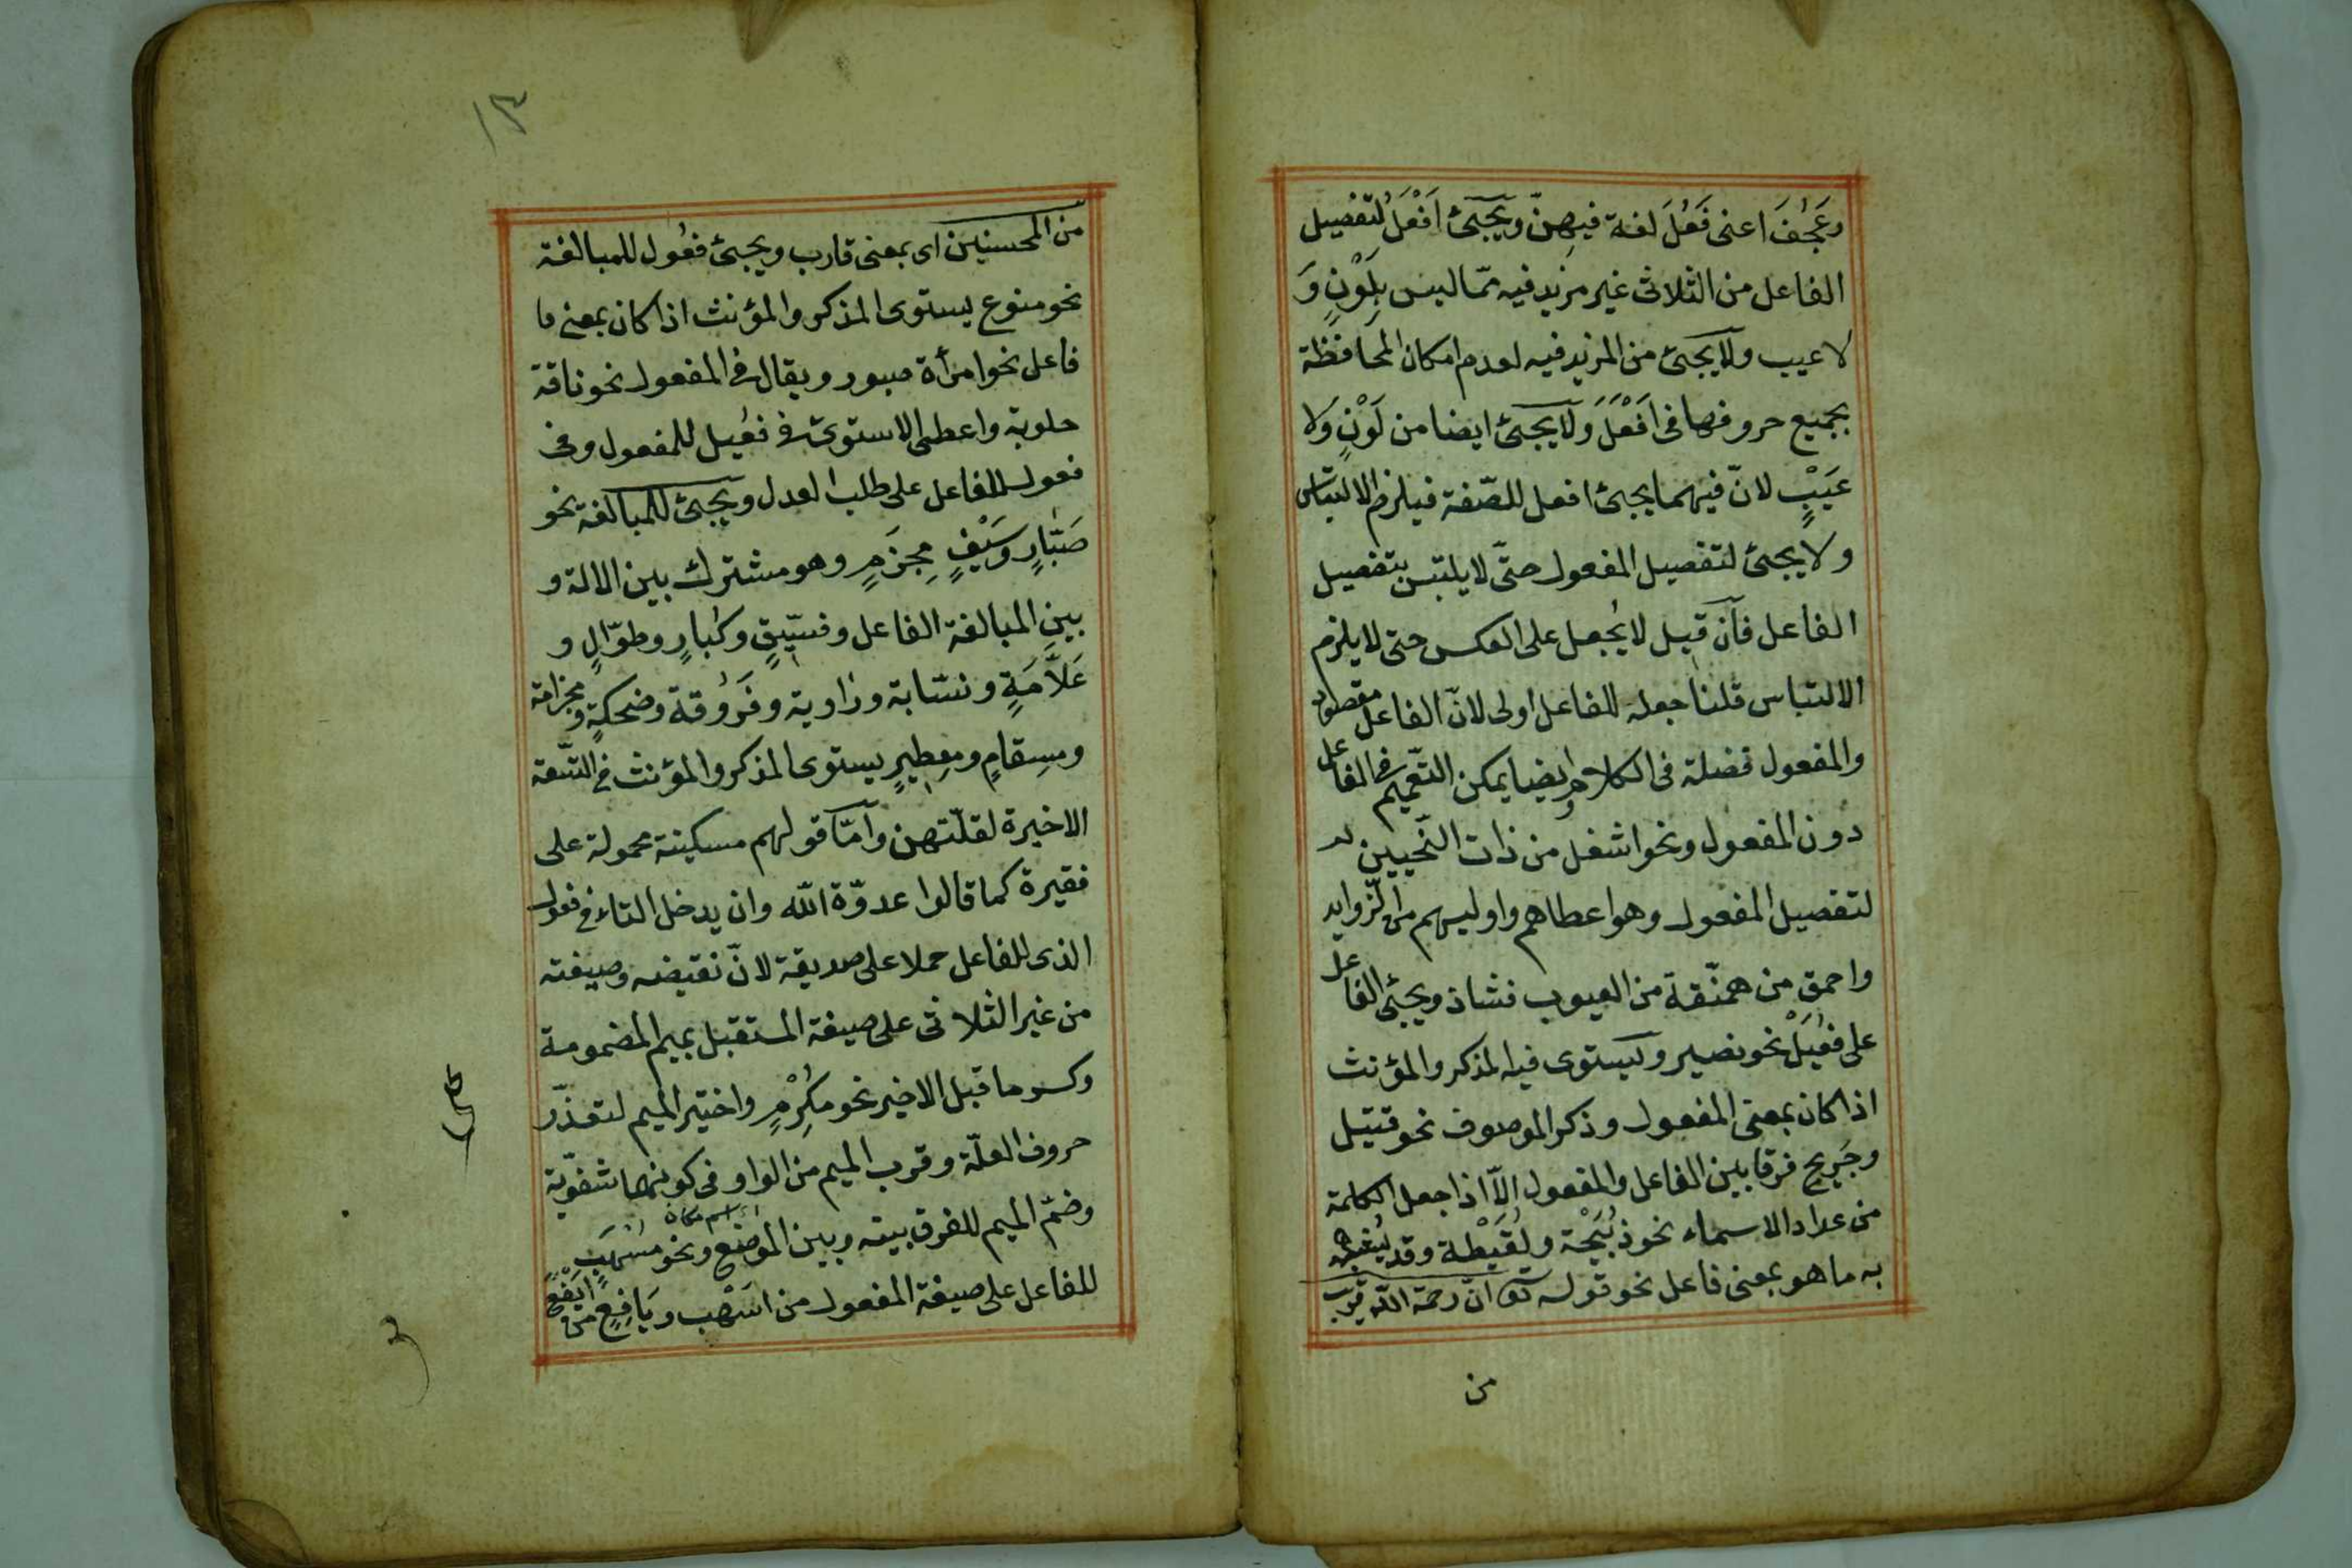 وعَجُفَ اعنى فَعُلَ لغة فيهنّ ويجئ اَفْعَلُ لتفضيل
الفاعل من الثلاثى غير مزيد فيه ممّا ليس بِلَوْنٍ وَ
لا عيب ولا يجئ من المزيد فيه لعدم امكان المحافظة
بجميع حروفها فى اَفْعَلَ وَلا يجئ ايضا من لَوْنٍ وَلا
عَيْبٍ لانّ فيهما يجئ افعل للصّفة فيلزم الالتباس
ولا يجئ لتفضيل المفعول حتّى لا يلتبس بتفضيل
الفاعل فان قيل لا يُجعل على العكس حتى لا يلزم
الالتباس قلنا جعله للفاعل اولى لانّ الفاعل مقصود
والمفعول فضلة فى الكلام وايضا يمكن التّعميم فى الفاعل
دون المفعول ونحو اشغل من ذات النّحيين
لتفضيل المفعول وهو اعطاهم واوليهم من الزّوايد
واحمق من همنّقة من العيوب فشاذ ويجئ الفاعل
على فَعِيْلٌ نحو نصير ويستوى فيه المذكر والمؤنث
اذا كان بمعنى المفعول وذكر الموصوف نحو قتيل
وجَرِيح فرقا بين الفاعل والمفعول الّا اذا جعل الكلمة
من عداد الاسماء نحو ذبيحة ولَقيْطة وقد يُشبه
به ما هو بمعنى فاعل نحو قوله تعو انّ رحمة اللّه قريب
من
١٣
من المحسنين اى بمعنى قارب ويجئ فعُول للمبالغة
نحو منوع يستوى المذكر والمؤنث اذا كان بمعنى فا
فاعل نحو امرأة صبور ويقال فى المفعول نحو ناقة
حلوبة واعطى الاستوى فى فعيل للمفعول وفى
فعول للفاعل على طلب العدل ويجئ للمبالغة نحو
صَبّارٍ وسَيْفٍ مِجزَمٍ وهو مشترك بين الالة و
بين المبالغة الفاعل وفسّيقٍ وكُبارٍ وطوّالٍ و
عَلاَّمَةٍ ونسّابة وراوية وفَرُوقة وضحكةٍ ومجزامة
ومِسقامٍ ومِعطِيرٍ يستوى المذكر والمؤنث فى التّسعة
الاخيرة لقلّتهن وامّا قولهم مسكينة محمولة على
فقيرة كما قالوا عدوّة اللّه وان يدخل التاء فى فعول
الذى للفاعل حملا على صديقة لانّ نقيضه وصيغته
من غير الثلاثى على صيغة المستقبل بميم المضمومة
وكسر ما قبل الاخير نحو مُكْرِمٍ واختير الميم لتعذّر
حروف العلّة وقرب الميم من الواو فى كونهما شفويّة
وضمّ الميم للفرق بينه وبين الموضع ونحو مُسْهَبٍ
للفاعل على صيغة المفعول من اسْهَب ويَافِعٍ من ايَفْعَ